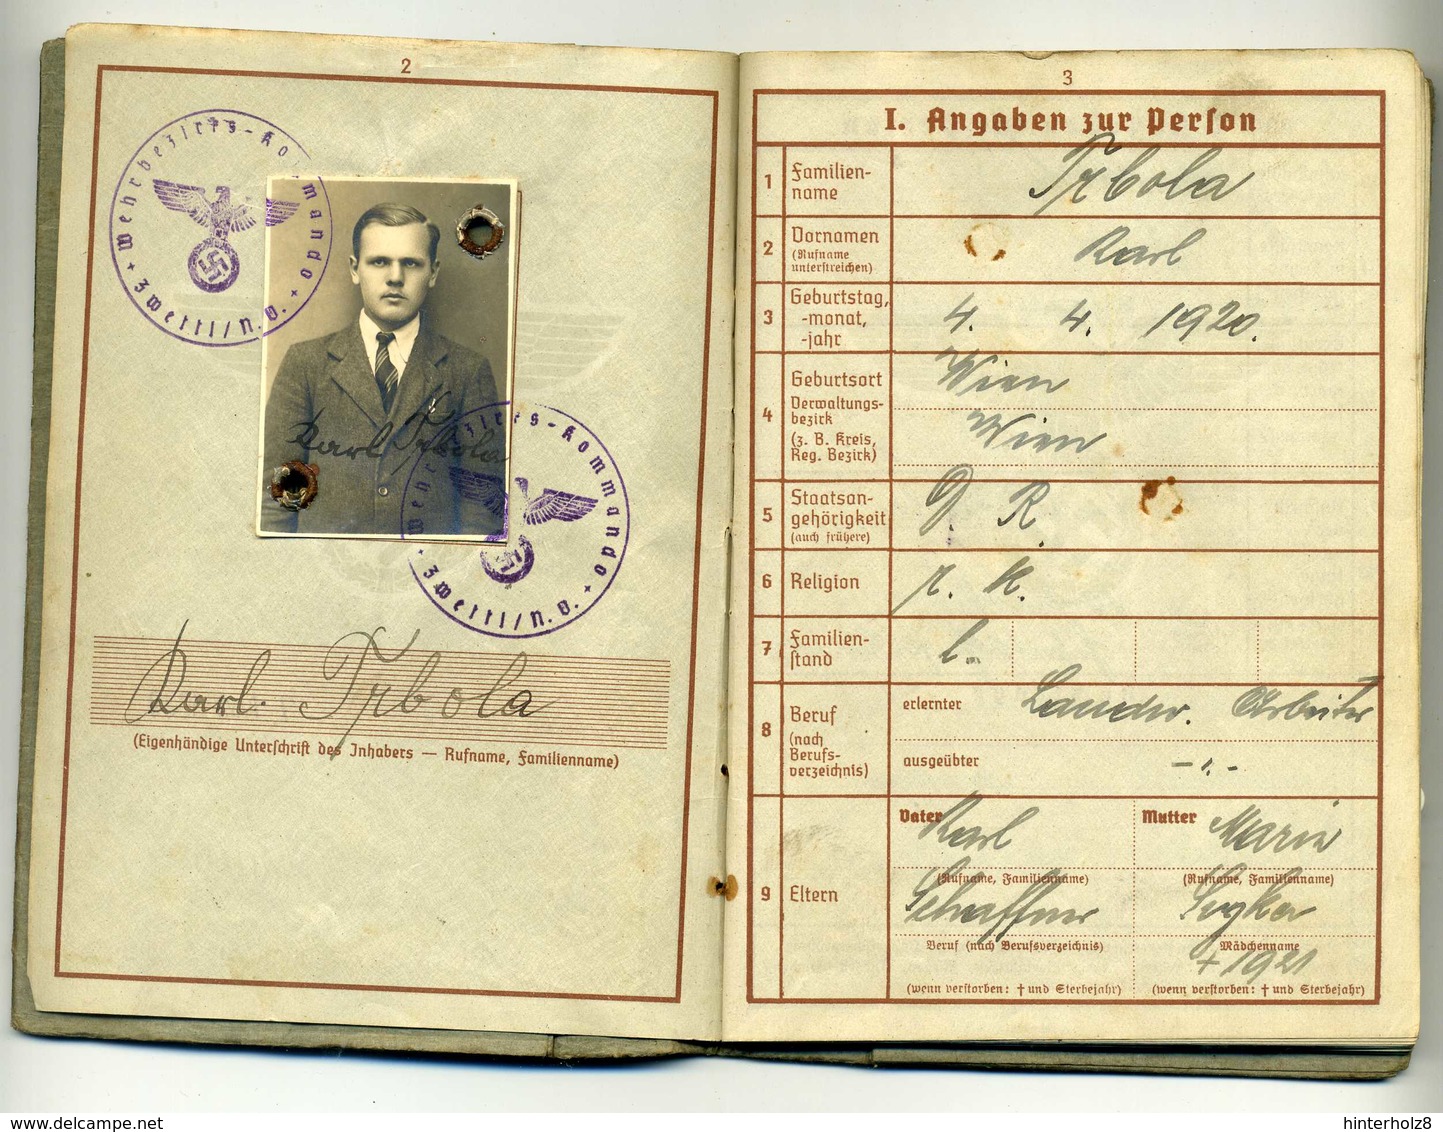 2
Wehrbezirks-Kommando
Zwettl/N.D.
Karl Trbola
Wehrbezirks-Kommando
Zwettl/N.D.
Karl Trbola
(Eigenhändige Unterschrift des Inhabers — Rufname, Familienname)
3
I. Angaben zur Person
1 Familien-
name
Trbola
2 Vornamen
(Rufname
unterstreichen)
Karl
3 Geburtstag,
-monat,
-jahr
4. 4. 1920.
4 Geburtsort
Verwaltungs-
bezirk
(z. B. Kreis,
Reg. Bezirk)
Wien
Wien
5 Staatsan-
gehörigkeit
(auch frühere)
D. R.
6 Religion
r. k.
7 Familien-
stand
l.
8 Beruf
(nach
Berufs-
verzeichnis)
erlernter Landw. Arbeiter
ausgeübter -"-
9 Eltern
Vater Karl
(Rufname, Familienname)
Schaffner
Beruf (nach Berufsverzeichnis)
(wenn verstorben: † und Sterbejahr)
Mutter Marie
(Rufname, Familienname)
Mädchenname
+ 1921
(wenn verstorben: † und Sterbejahr)
www.delcampe.net
hinterholz8